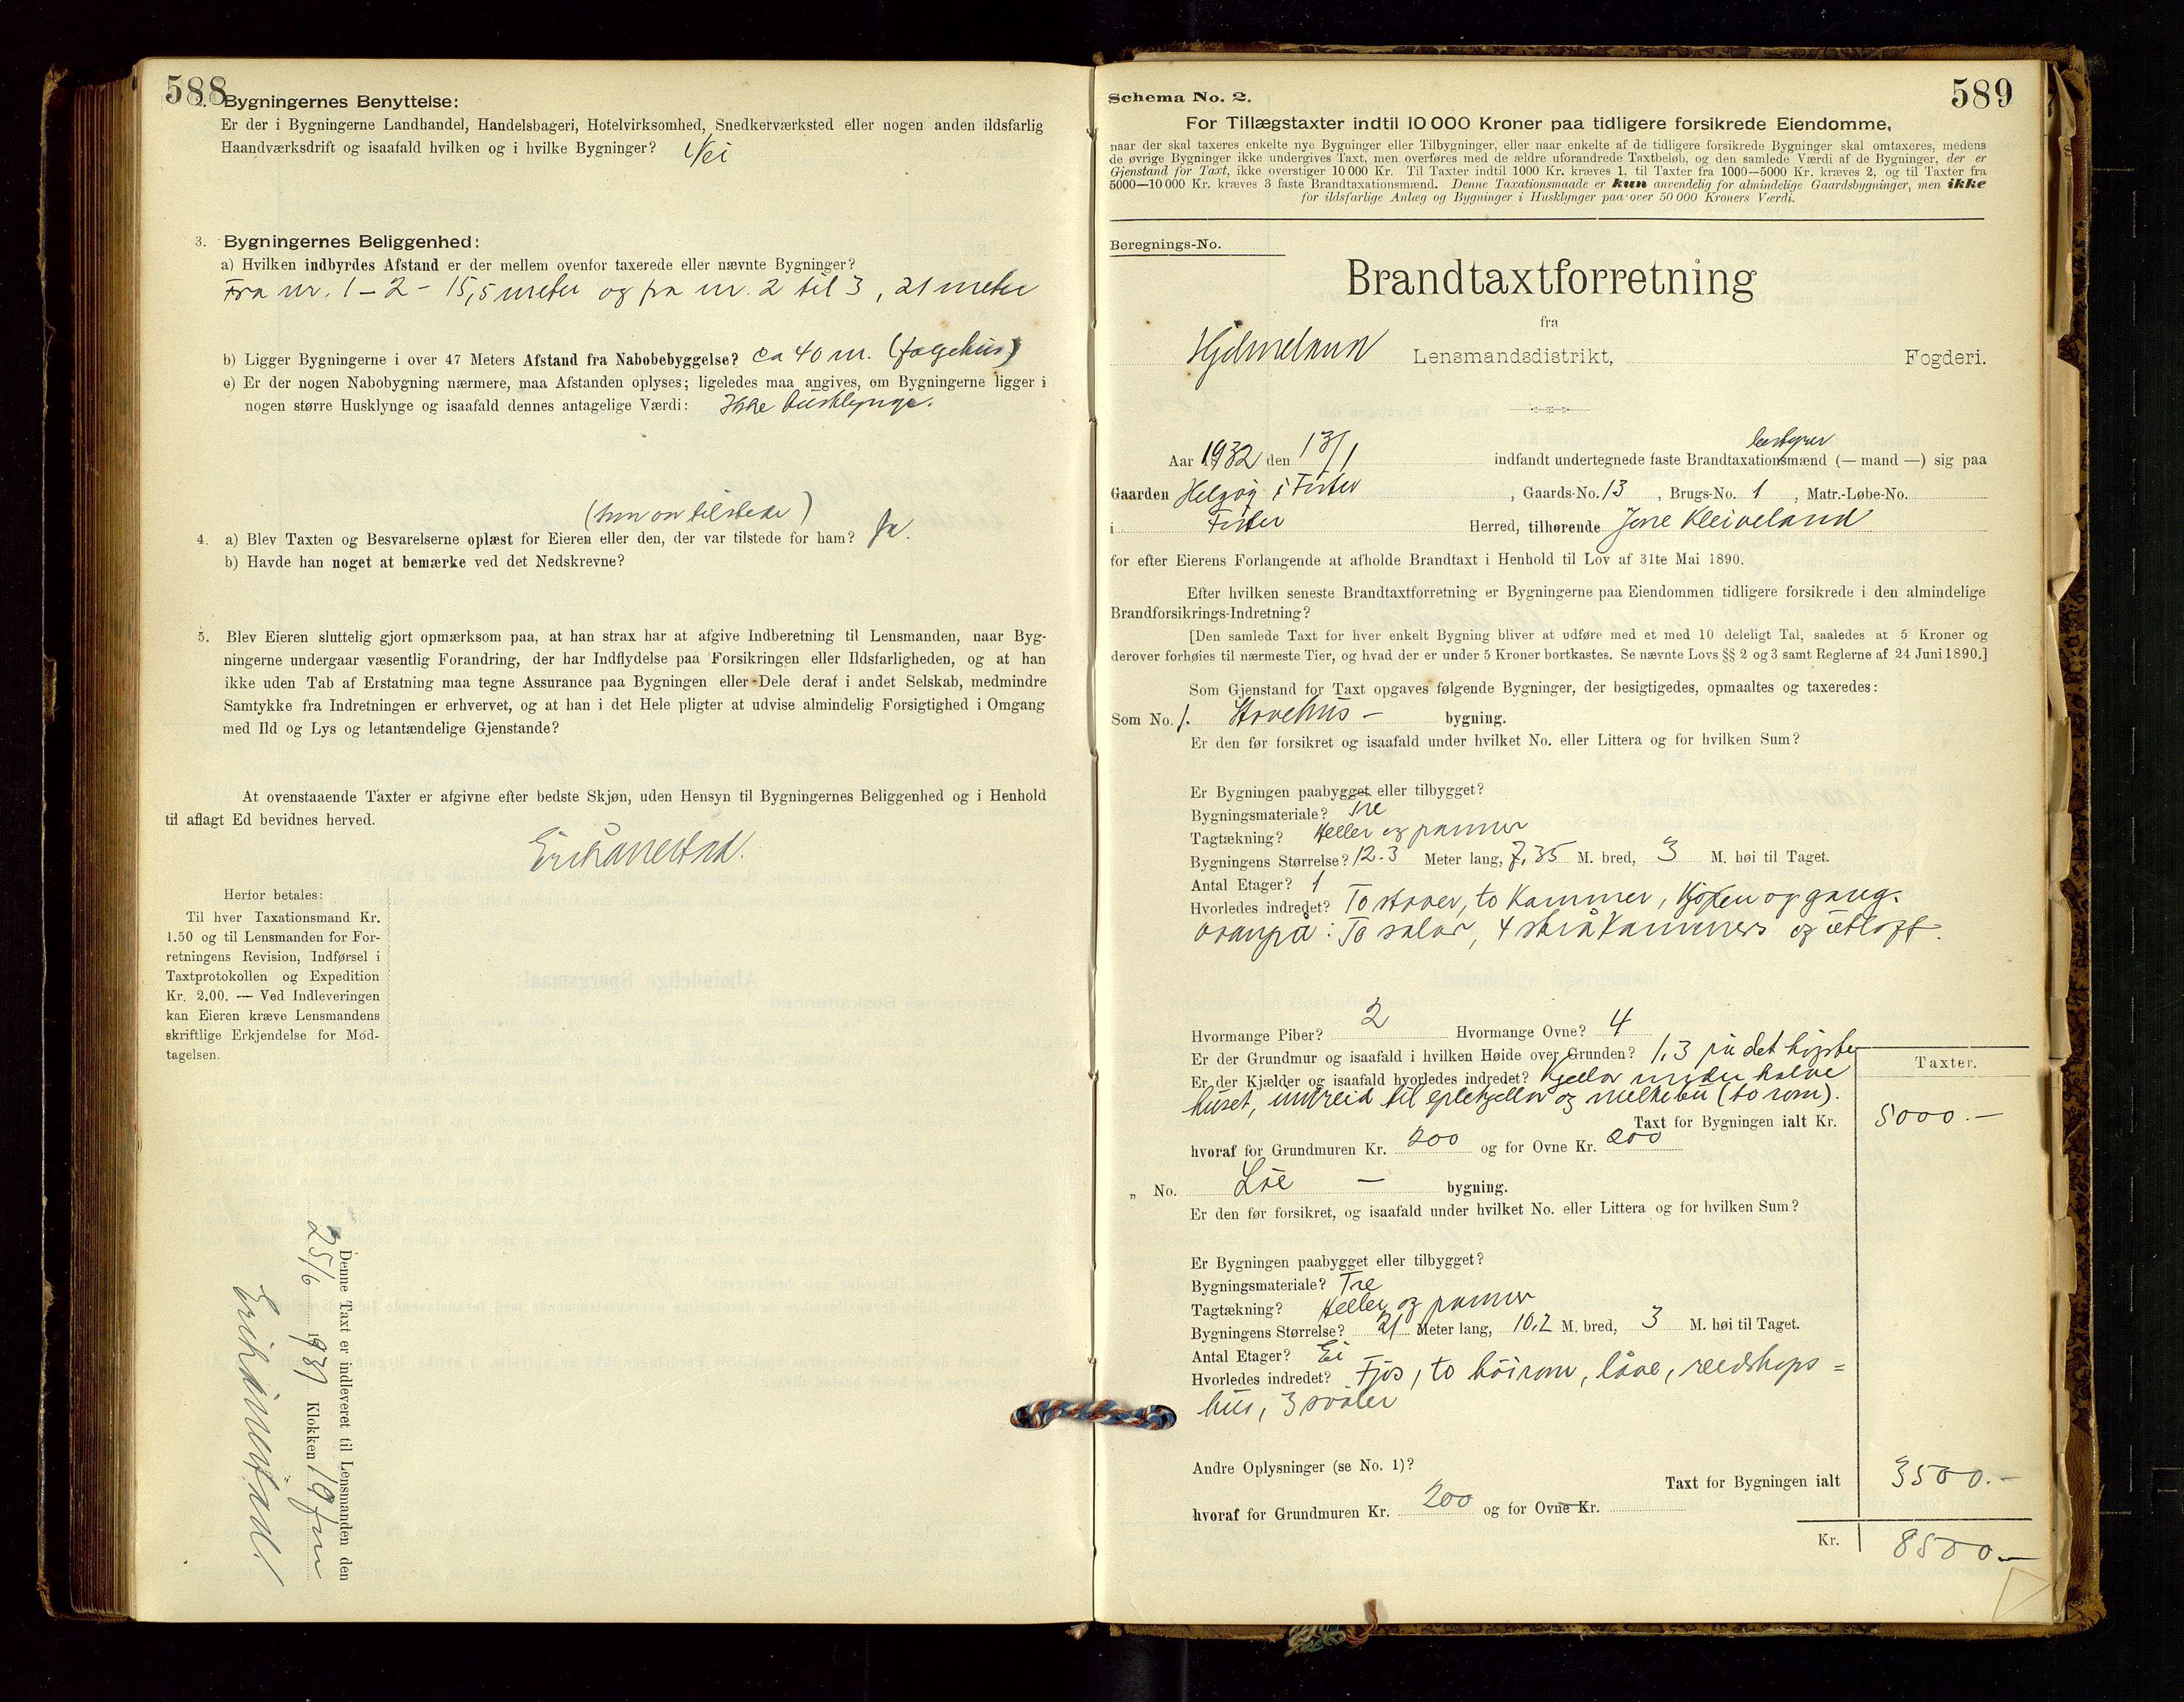 588
2. Bygningernes Benyttelse:
Er der i Bygningerne Landhandel, Handelsbageri, Hotelvirksomhed, Snedkerværksted eller nogen anden ildsfarlig
Haandværksdrift og isaafald hvilken og i hvilke Bygninger? Nei
3. Bygningernes Beliggenhed:
a) Hvilken indbyrdes Afstand er der mellem ovenfor taxerede eller nævnte Bygninger?
Fra nr. 1 - 2 - 15,5 meter og fra nr. 2 til 3, 21 meter
b) Ligger Bygningerne i over 47 Meters Afstand fra Nabobebyggelse? ca 40 m. (følgehus)
c) Er der nogen Nabobygning nærmere, maa Afstanden oplyses; ligeledes maa angives, om Bygningerne ligger i
nogen større Husklynge og isaafald dennes antagelige Værdi: Ikke husklynge.
(som var tilstede)
4. a) Blev Taxten og Besvarelserne oplæst for Eieren eller den, der var tilstede for ham? Ja.
b) Havde han noget at bemærke ved det Nedskrevne?
5. Blev Eieren sluttelig gjort opmærksom paa, at han strax har at afgive Indberetning til Lensmanden, naar Byg-
ningerne undergaar væsentlig Forandring, der har Indflydelse paa Forsikringen eller Ildsfarligheden, og at han
ikke uden Tab af Erstatning maa tegne Assurance paa Bygningen eller Dele deraf i andet Selskab, medmindre
Samtykke fra Indretningen er erhvervet, og at han i det Hele pligter at udvise almindelig Forsigtighed i Omgang
med Ild og Lys og letantændelige Gjenstande?
At ovenstaaende Taxter er afgivne efter bedste Skjøn, uden Hensyn til Bygningernes Beliggenhed og i Henhold
til aflagt Ed bevidnes herved.
Erik Ånestad.
Herfor betales:
Til hver Taxationsmand Kr.
1.50 og til Lensmanden for For-
retningens Revision, Indførsel i
Taxtprotokollen og Expedition
Kr. 2.00. — Ved Indleveringen
kan Eieren kræve Lensmandens
skriftlige Erkjendelse for Mod-
tagelsen.
Denne Taxt er indleveret til Lensmanden den
25/6 1931 Klokken 19 fm
Erik Ånestad.
Schema No. 2.
589
For Tillægstaxter indtil 10 000 Kroner paa tidligere forsikrede Eiendomme,
naar der skal taxeres enkelte nye Bygninger eller Tilbygninger, eller naar enkelte af de tidligere forsikrede Bygninger skal omtaxeres, medens
de øvrige Bygninger ikke undergives Taxt, men overføres med de ældre uforandrede Taxtbeløb, og den samlede Værdi af de Bygninger, der er
Gjenstand for Taxt, ikke overstiger 10 000 Kr. Til Taxter indtil 1000 Kr. kræves 1, til Taxter fra 1000—5000 Kr. kræves 2, og til Taxter fra
5000—10 000 Kr. kræves 3 faste Brandtaxationsmænd. Denne Taxationsmaade er kun anvendelig for almindelige Gaardsbygninger, men ikke
for ildsfarlige Anlæg og Bygninger i Husklynger paa over 50 000 Kroners Værdi.
Beregnings-No.
Brandtaxtforretning
fra
Hjelmeland Lensmandsdistrikt, Fogderi.
bestyrer
Aar 1932 den 13/1 indfandt undertegnede faste Brandtaxationsmænd (— mand —) sig paa
Gaarden Helgøy i Fister, Gaards-No. 13, Brugs-No. 1, Matr.-Løbe-No.
i Fister Herred, tilhørende Jone Kleiveland
for efter Eierens Forlangende at afholde Brandtaxt i Henhold til Lov af 31te Mai 1890.
Efter hvilken seneste Brandtaxtforretning er Bygningerne paa Eiendommen tidligere forsikrede i den almindelige
Brandforsikrings-Indretning?
[Den samlede Taxt for hver enkelt Bygning bliver at udføre med et med 10 deleligt Tal, saaledes at 5 Kroner og
derover forhøies til nærmeste Tier, og hvad der er under 5 Kroner bortkastes. Se nævnte Lovs §§ 2 og 3 samt Reglerne af 24 Juni 1890.]
Som Gjenstand for Taxt opgaves følgende Bygninger, der besigtigedes, opmaaltes og taxeredes:
Som No. 1. Stovehus - bygning.
Er den før forsikret og isaafald under hvilket No. eller Littera og for hvilken Sum?
Er Bygningen paabygget eller tilbygget?
Bygningsmateriale? Tre
Tagtækning? Heller og panner
Bygningens Størrelse? 12.3 Meter lang, 7,35 M. bred, 3 M. høi til Taget.
Antal Etager? 1
Hvorledes indredet? To stover, to kammer, kjøken og gang.
ovanpå: To salar, 4 skråkammers og utloft.
Hvormange Piber? 2 Hvormange Ovne? 4
Er der Grundmur og isaafald i hvilken Høide over Grunden? 1,3 på det høgste
Er der Kjælder og isaafald hvorledes indredet? Kjellar under halve
huset, innreid til eplekjellar og melkebu (to rom).
Taxter.
Taxt for Bygningen ialt Kr. 5000.-
hvoraf for Grundmuren Kr. 200 og for Ovne Kr. 200
„ No. Løe - bygning.
Er den før forsikret, og isaafald under hvilket No. eller Littera og for hvilken Sum?
Er Bygningen paabygget eller tilbygget?
Bygningsmateriale? Tre
Tagtækning? Heller og panner
Bygningens Størrelse? 21 Meter lang, 10,2 M. bred, 3 M. høi til Taget.
Antal Etager? Ei
Hvorledes indredet? Fjos, to høirom, låve, reidskaps=
hus, 3 svåler
Andre Oplysninger (se No. 1)?
Taxt for Bygningen ialt 3500.-
hvoraf for Grundmuren Kr. 200 og for Ovne Kr.
Kr. 8500.-